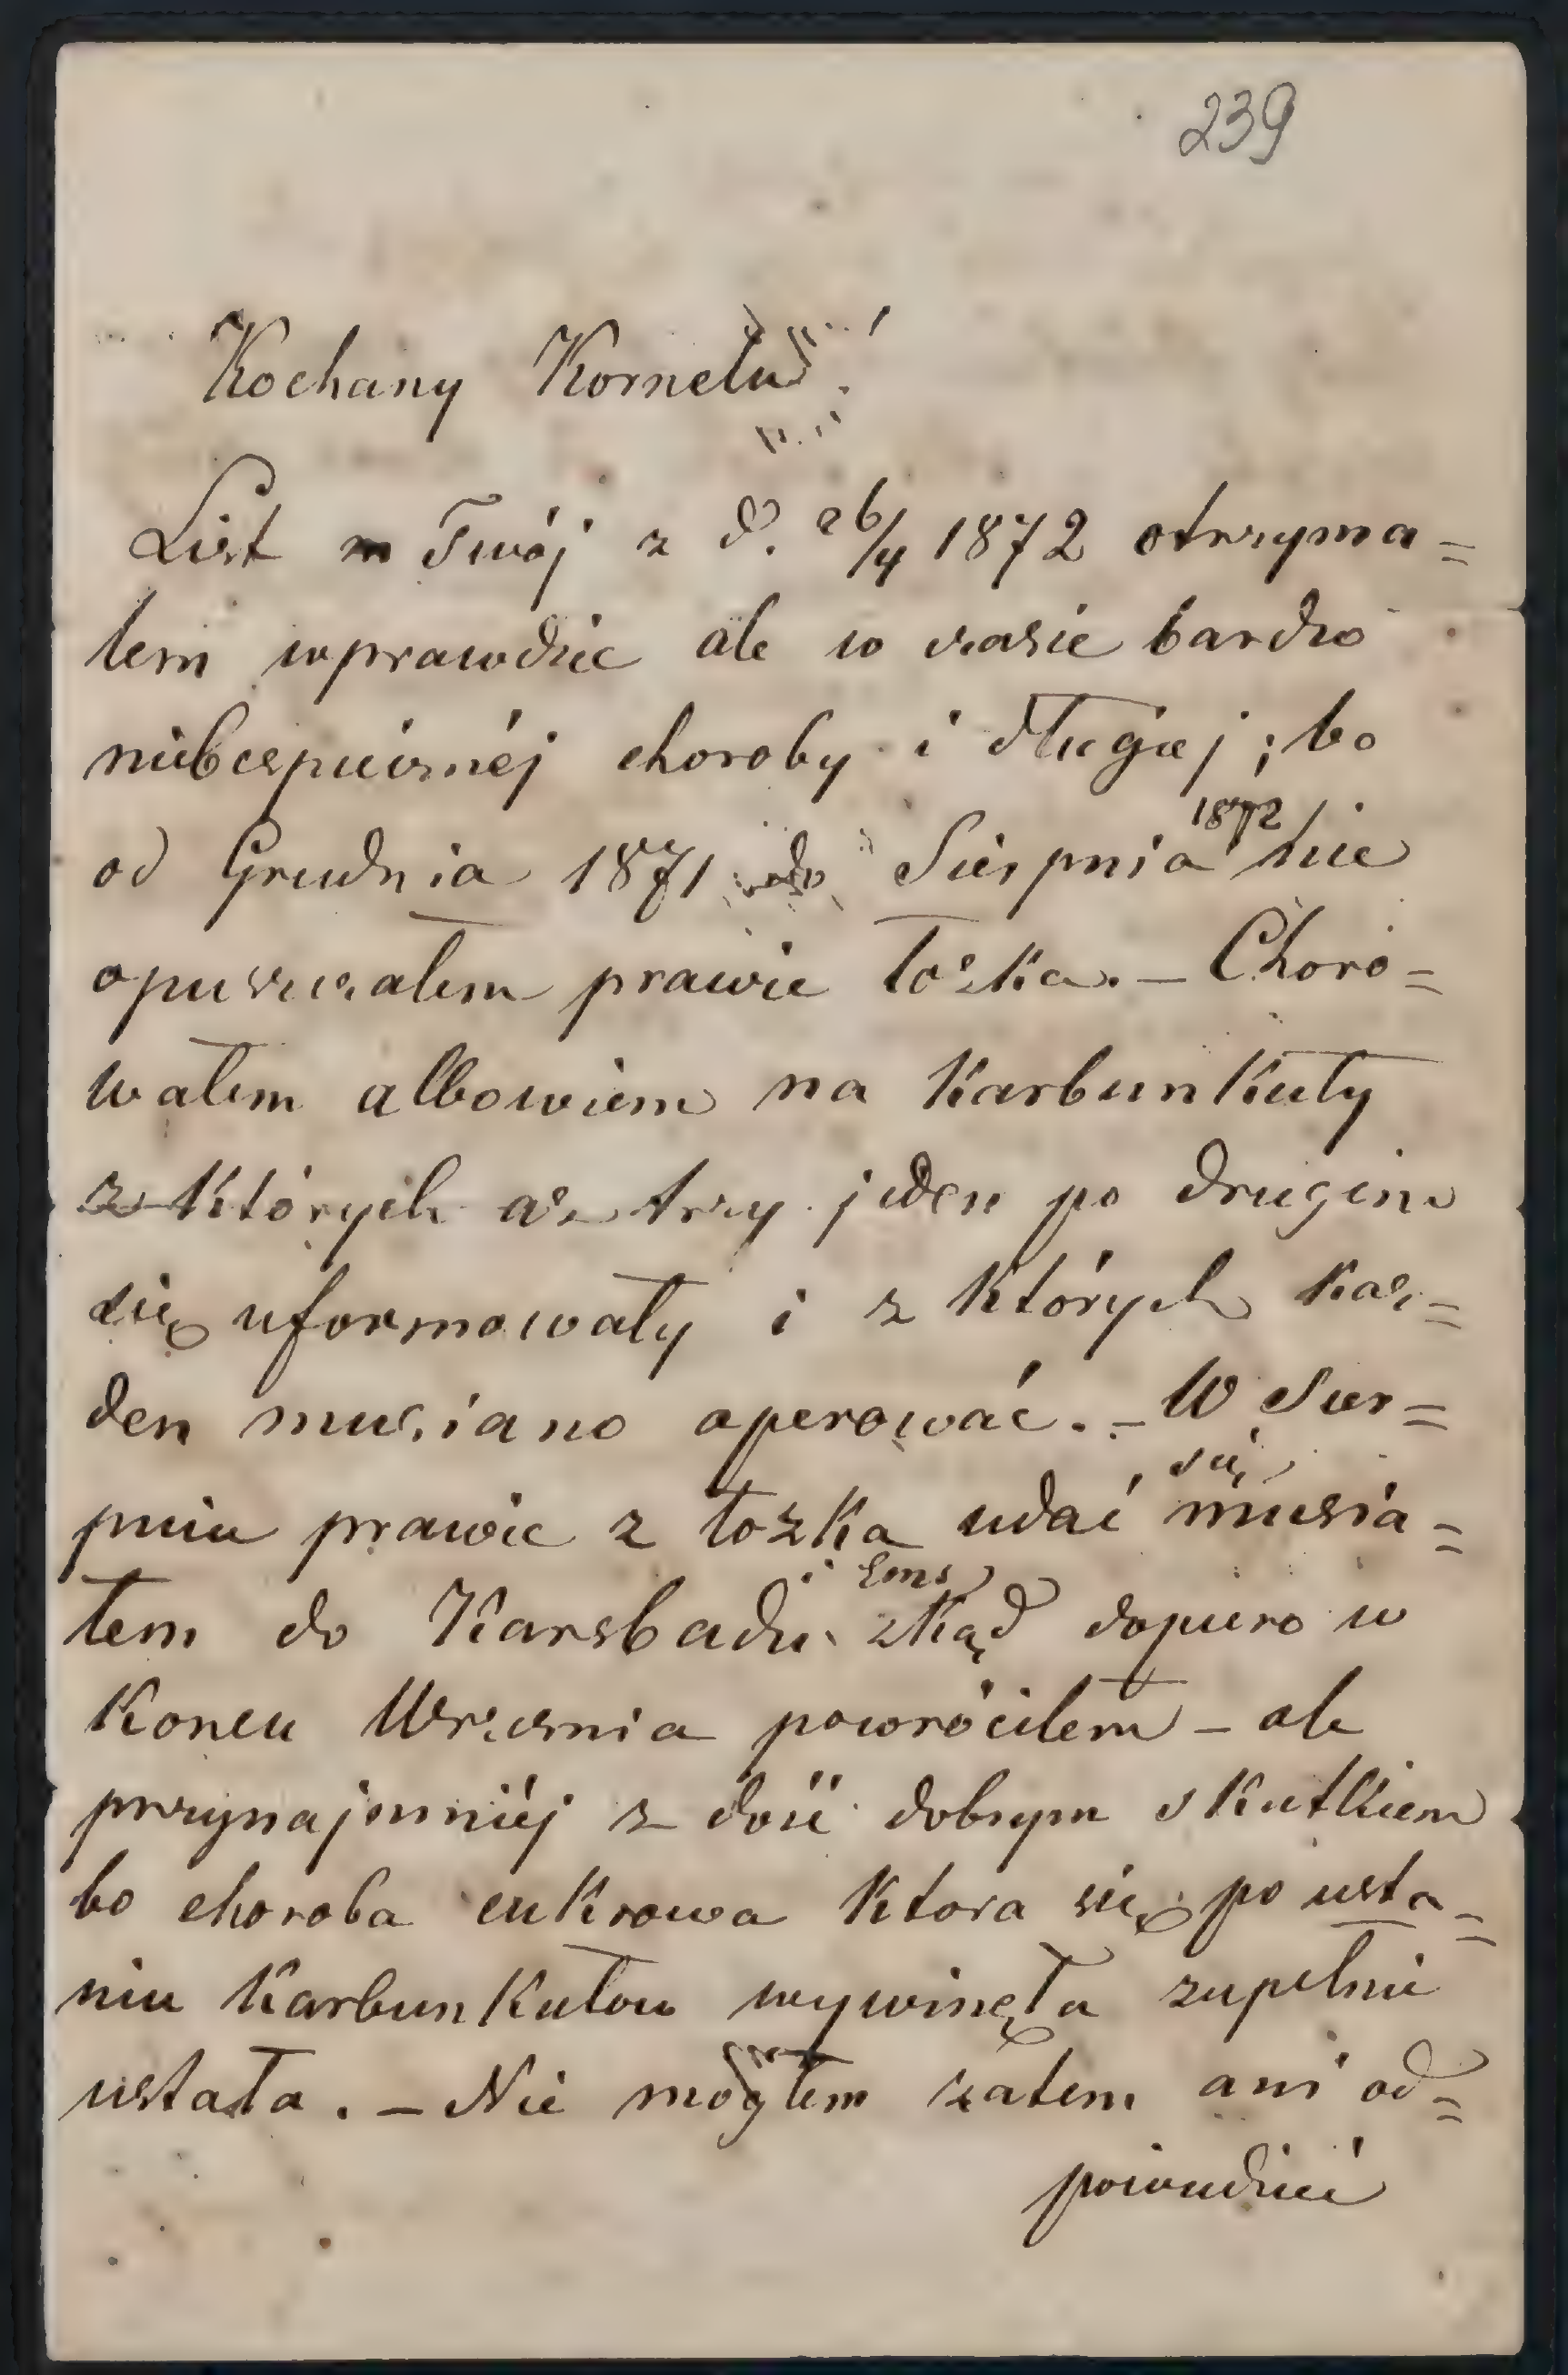 239
Kochany Kornelu!
List Twój z d. 26/4 1872 otrzyma=
łem wprawdzie ale w czasie bardzo
niebezpiecznéj choroby i długiej; bo
od Grudnia 1871 do Sierpnia 1872 nie
opuszczałem prawie łozka. – Choro=
wałem albowiem na Karbunkuły
z których aż trzy jeden po drugim
się uformowały i z których każ=
den musiano operować. – W Sier=
pniu prawie z łozka udać się musia=
łem do Karsbadu i Ems zkąd dopiero w
Koncu Września powróciłem – ale
przynajmniéj z dość dobrym skutkiem
bo choroba cukrowa ktora się po usta=
niu Karbunkułow wywinęła zupełnie
ustała. – Nie mogłem zatem ani od=
powiedzieć